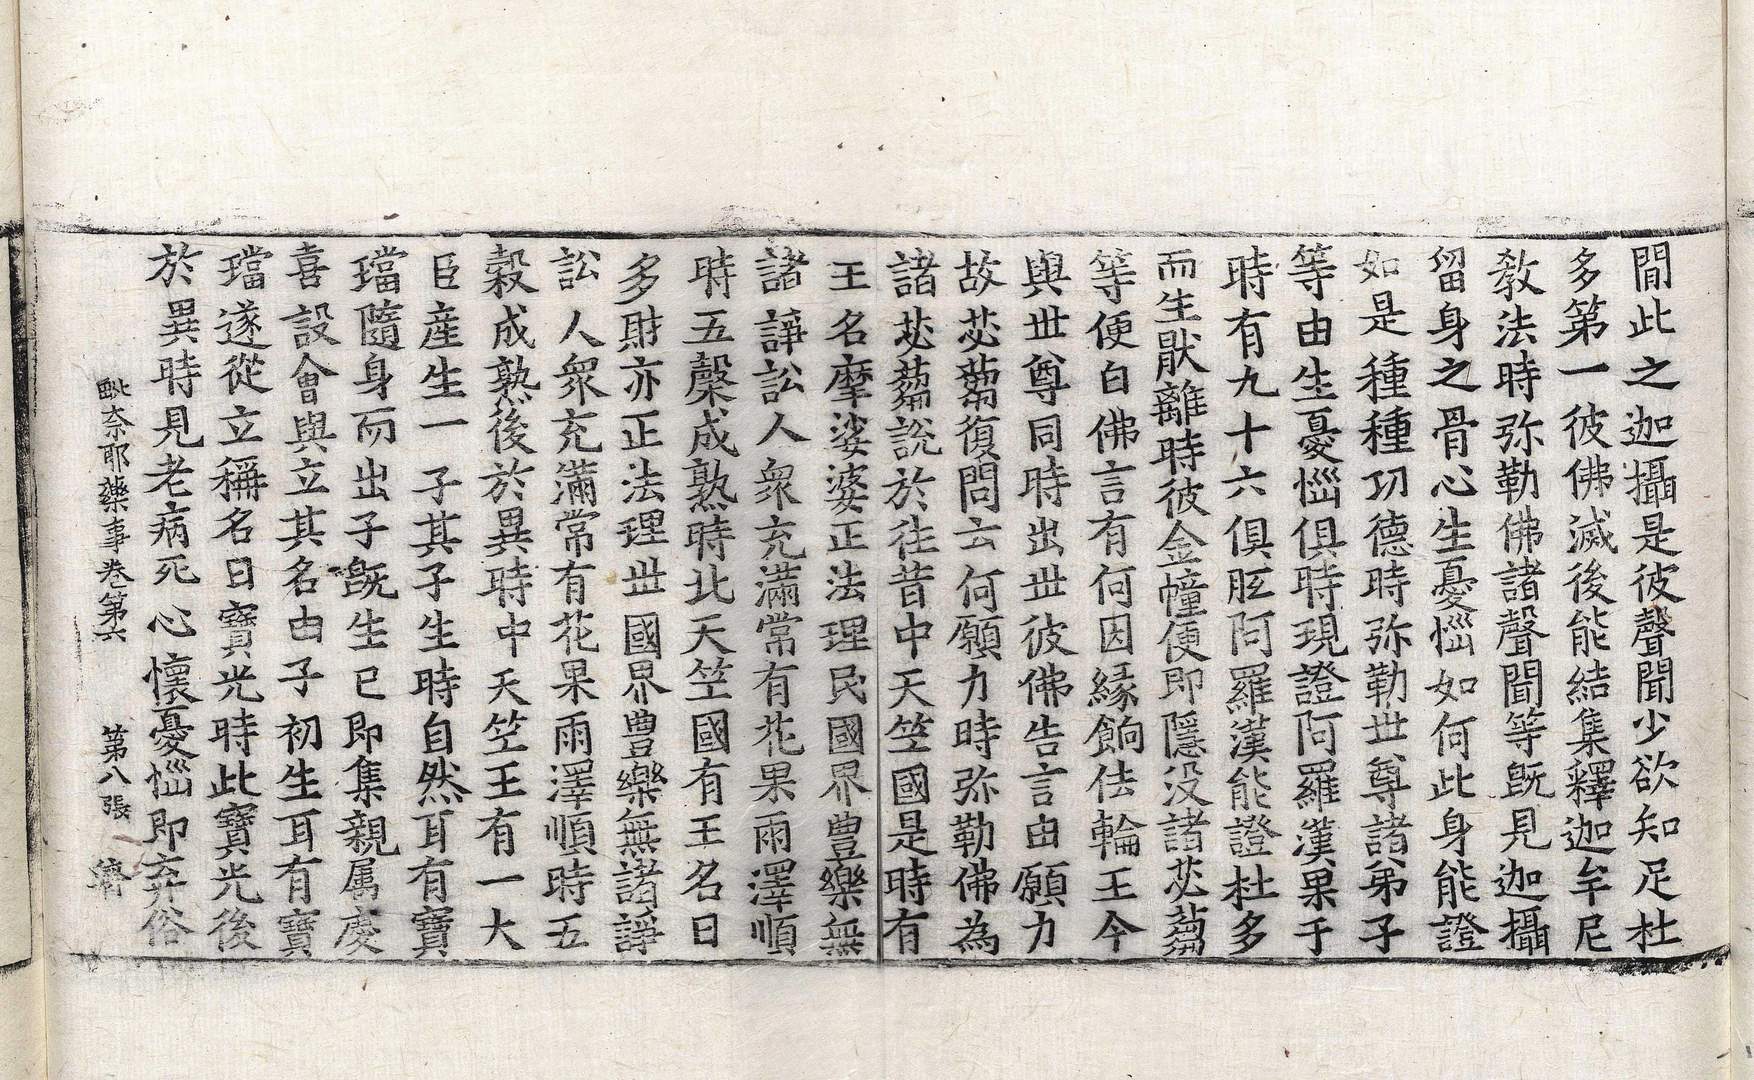 閒此之迦攝是彼聲聞少欲知足杜
多第一彼佛滅後能結集釋迦牟尼
教法時弥勒佛諸聲聞等旣見迦攝
留身之骨心生憂惱如何此身能證
如是種種功德時弥勒世尊諸弟子
等由生憂惱俱時現證阿羅漢果于
時有九十六俱胝阿羅漢能證杜多
而生猒離時彼金幢便即隱没諸苾蒭
等便白佛言有何因緣餉佉輪王今
與世尊同時出世彼佛告言由願力
故苾蒭復問云何願力時弥勒佛為
諸苾蒭說於往昔中天竺國是時有
王名摩娑婆正法理民國界豊樂無
諸諍訟人衆充滿常有花果雨澤順
時五穀成熟時北天竺國有王名曰
多財亦正法理世國界豊樂無諸諍
訟人衆充滿常有花果雨澤順時五
穀成熟後於異時中天竺王有一大
臣産生一子其子生時自然耳有寶
璫隨身而出子旣生已即集親属慶
喜設會與立其名由子初生耳有寶
璫遂從立稱名曰寶光時此寶光後
於異時見老病死心懷憂惱即弃俗
毗奈耶藥事卷第六 第八張